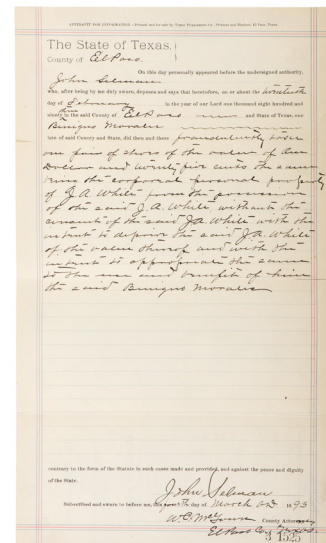 AFFIDAVIT FOR INFORMATION
The State of Texas.
County of El Paso.
On this day personally appeared before the undersigned authority,
John Selman
who, after being by me duly sworn, deposes and says that heretofore, on or about the twentieth
day of February in the year of our Lord one thousand eight hundred and
ninety three in the said County of El Paso and State of Texas, one
Benigno Morales
late of said County and State, did then and there fraudulently
one pair of shoes of the value of one
Dollar and twenty five cents the same
being the corporeal personal property
of J. A. White from the possession
of the said J. A. White without the
consent of the said J. A. White with the
intent to deprive the said J. A. White
of the value thereof and with the
intent to appropriate the same
to the use and benefit of him
the said Benigno Morales
contrary to the form of the Statute in such cases made and provided, and against the peace and dignity
of the State.
John Selman
Subscribed and sworn to before me, this day of March 1893
W. C. McGown County Attorney
El Paso Co. Texas
3 1525